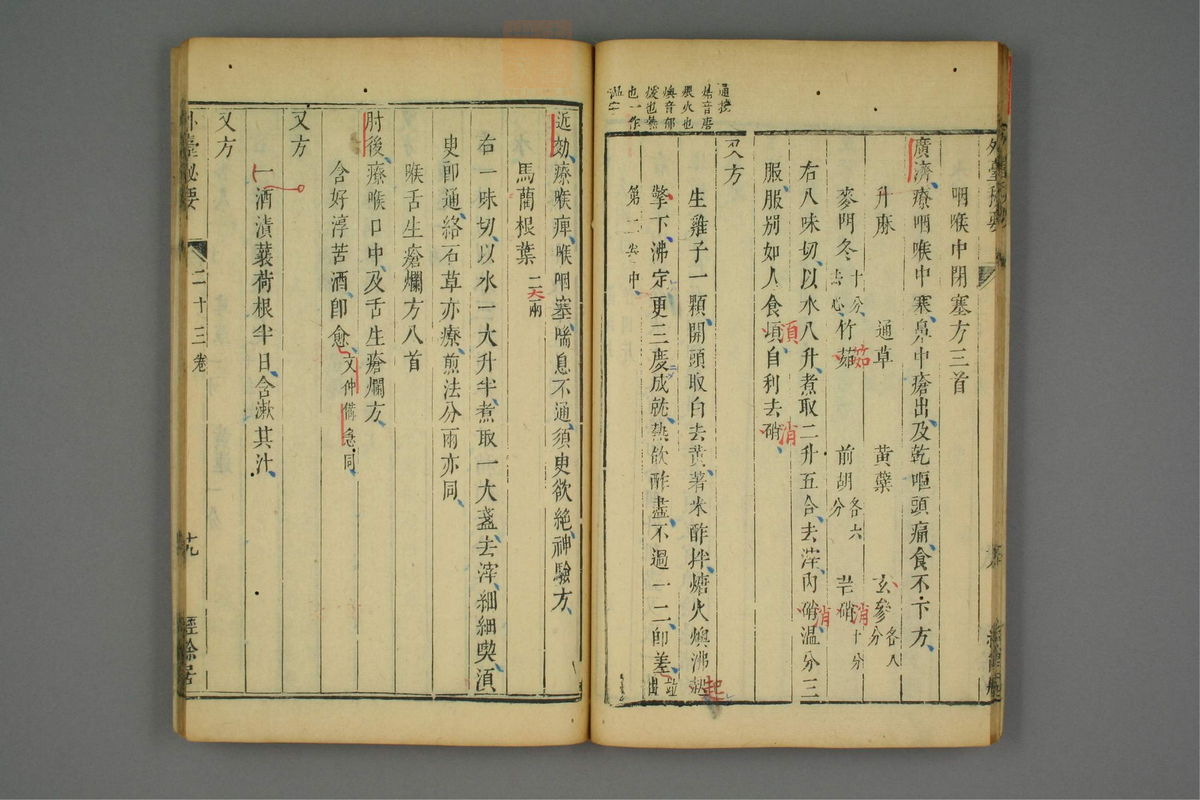 咽喉中閉塞方三首
廣濟療咽喉中塞鼻中瘡出及乾嘔頭痛食不下方
升麻 通草 黃蘗 玄參各八分
麥門冬十分去心 竹茹 前胡各六分 芒硝消十分
右八味切以水八升煮取二升五合去滓內硝消溫分三
服服別如人食頃自利去硝消
又方
生雞子一顆開頭取白去黃著米酢拌煻火燠沸起
擎下沸定更三度成就熱飲酢盡不過一二即差並出
第二卷中
通按
煻音唐
煨火也
燠音郁
煖也熱
也一作
溫
近効療喉痺喉咽塞喘息不通須臾欲絕神驗方
馬藺根葉二大兩
右一味切以水一大升半煮取一大盞去滓細細喫須
臾即通絡石草亦療煎法分兩亦同
喉舌生瘡爛方八首
肘後療喉口中及舌生瘡爛方
含好淳苦酒即愈文仲備急同
又方
酒漬蘘荷根半日含漱其汁
又方
外臺秘要 二十三卷 十九 經餘居